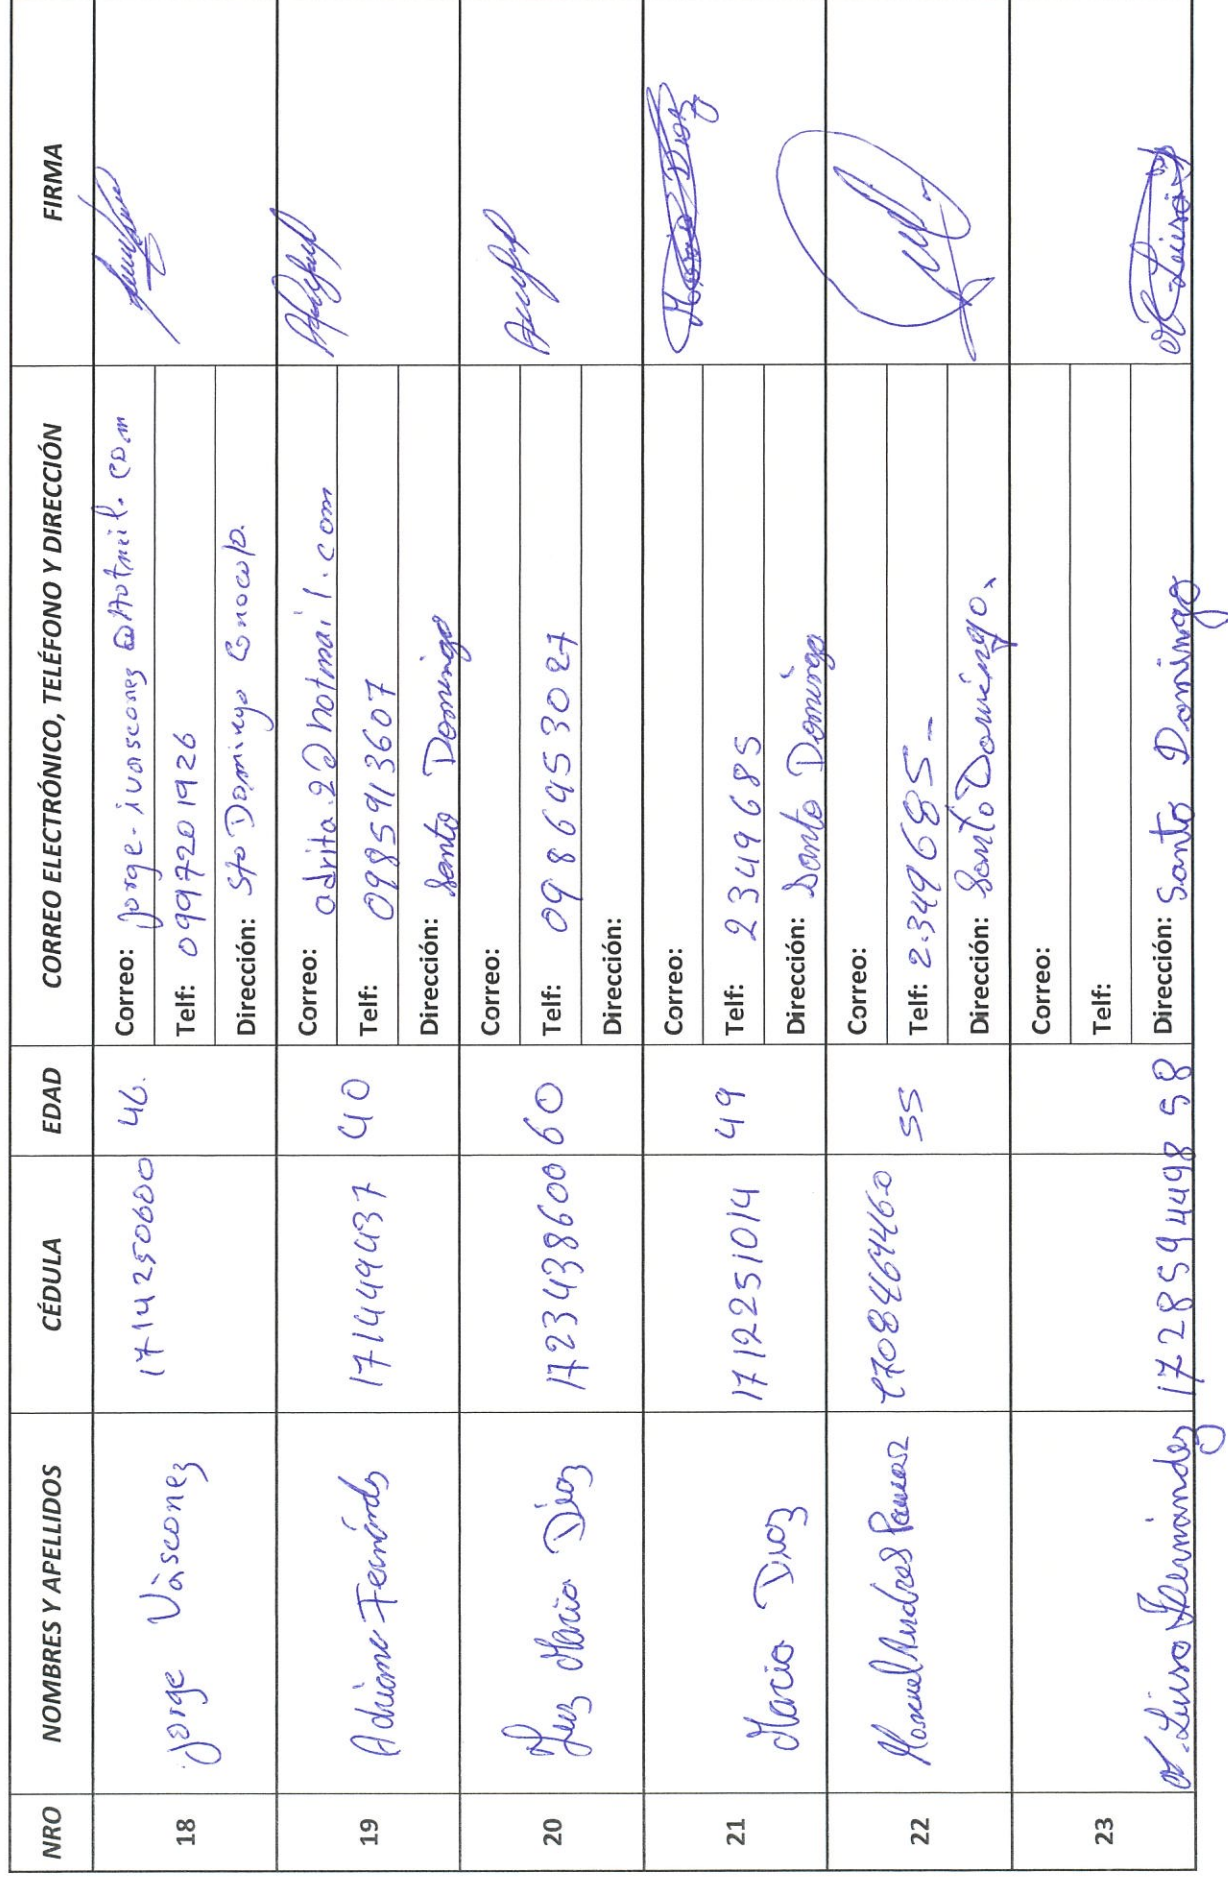 NRO NOMBRES Y APELLIDOS CÉDULA EDAD CORREO ELECTRÓNICO, TELÉFONO Y DIRECCIÓN FIRMA
18 Jorge Vàsconez 1714250600 46. Correo: jorge-ivasconez@Hotmeil.com
Telf: 0997201926
Dirección: Sto Domingo Conocoto.
19 Adriana Fernánds 171444937 40 Correo: adrita.2@hotmail.com
Telf: 0985913607
Dirección: Santo Domingo
20 Luz Maria Diaz 1723438600 60 Correo:
Telf: 0986953027
Dirección:
21 Maria Diaz 1712251014 49 Correo:
Telf: 2349685
Dirección: Santo Domingo
22 Manuel Andres 55 Correo:
Telf: 2.349685-
Dirección: Santo Domingo.
23 Correo:
Telf:
M. Luisa Hernandez 1728594498 58 Dirección: Santo Domingo